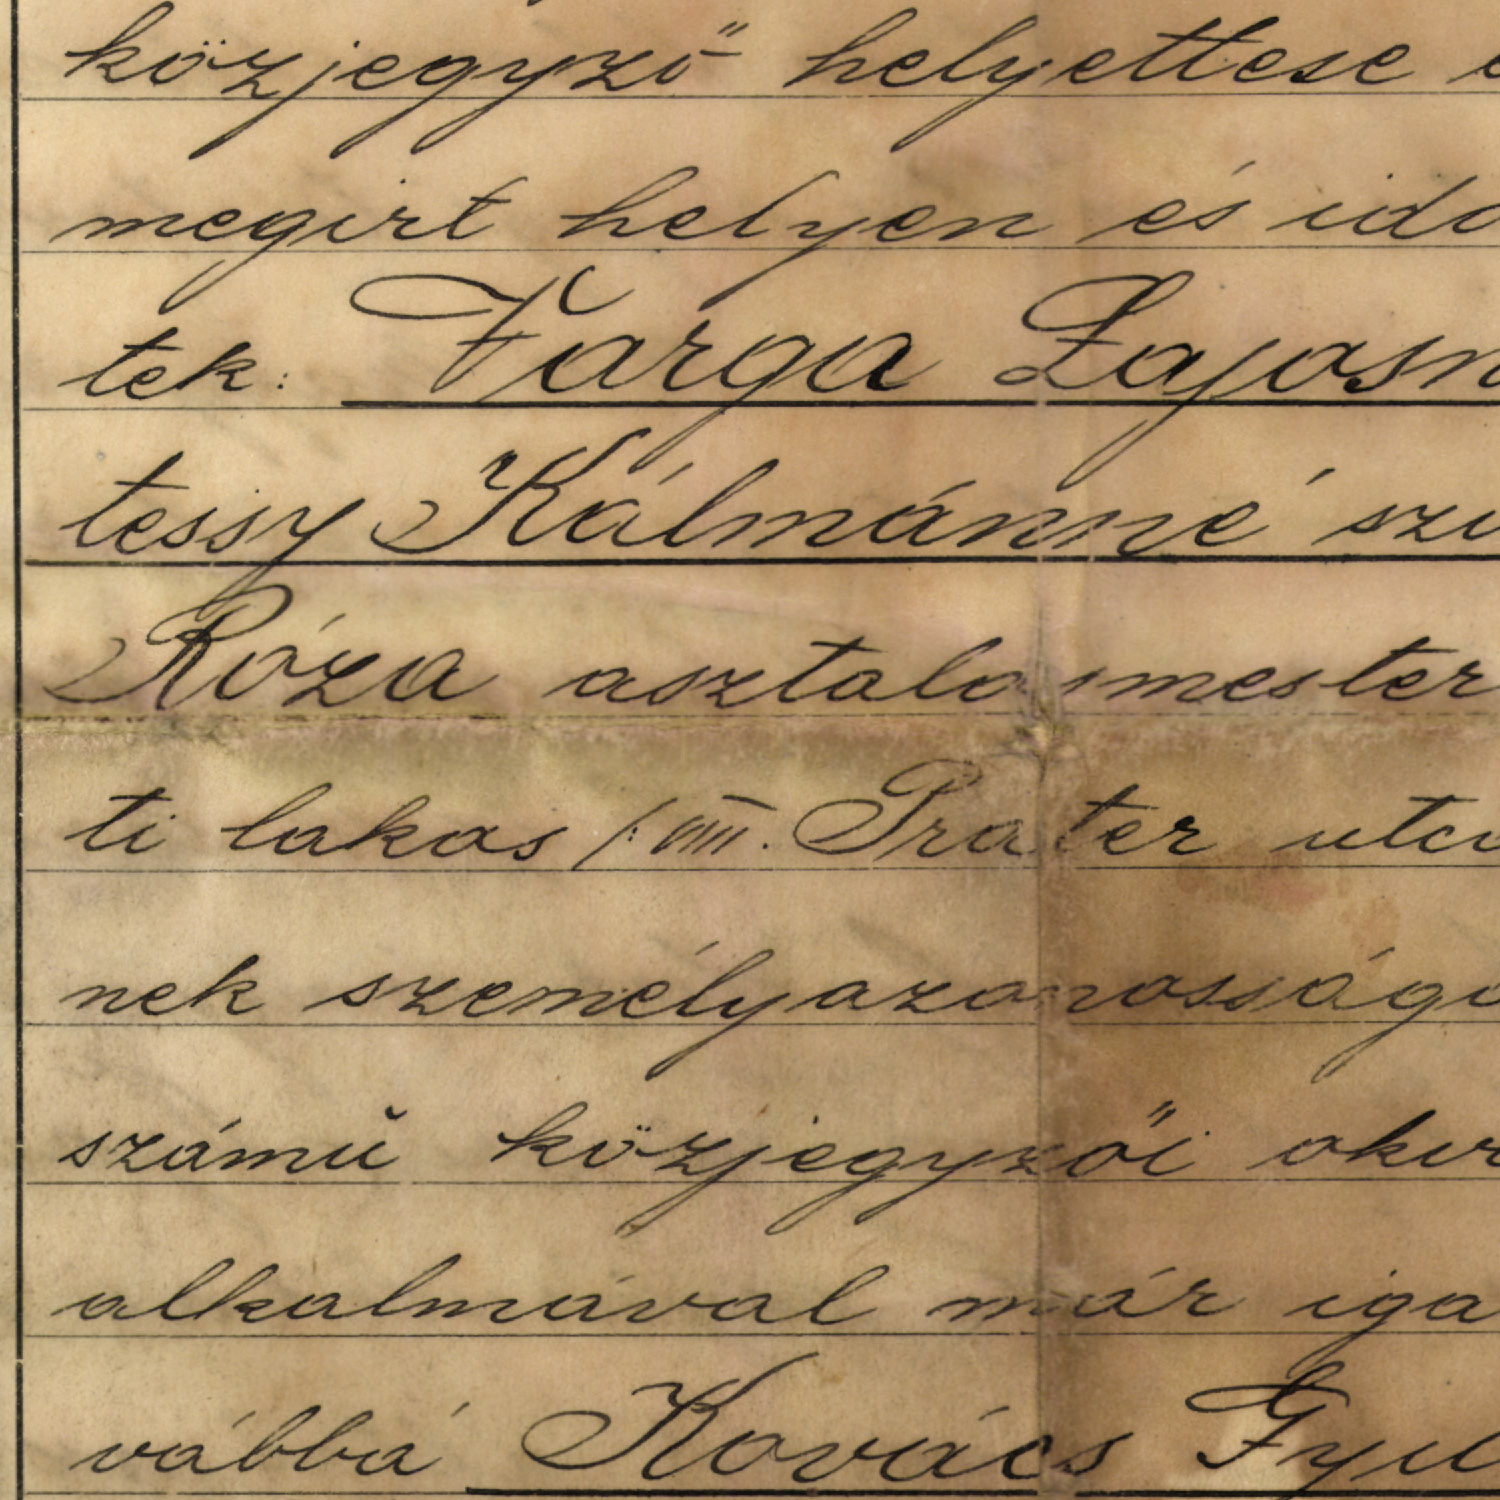 közjegyző helyettese
megirt helyen és idő
tek: Varga Lajosn
tessy Kálmánné szü
Róza asztalosmester
ti lakos /: VIII. Práter utca
nek személyazonossága
számú közjegyzői okir
alkalmával már iga
vábbá Kovács Gyul